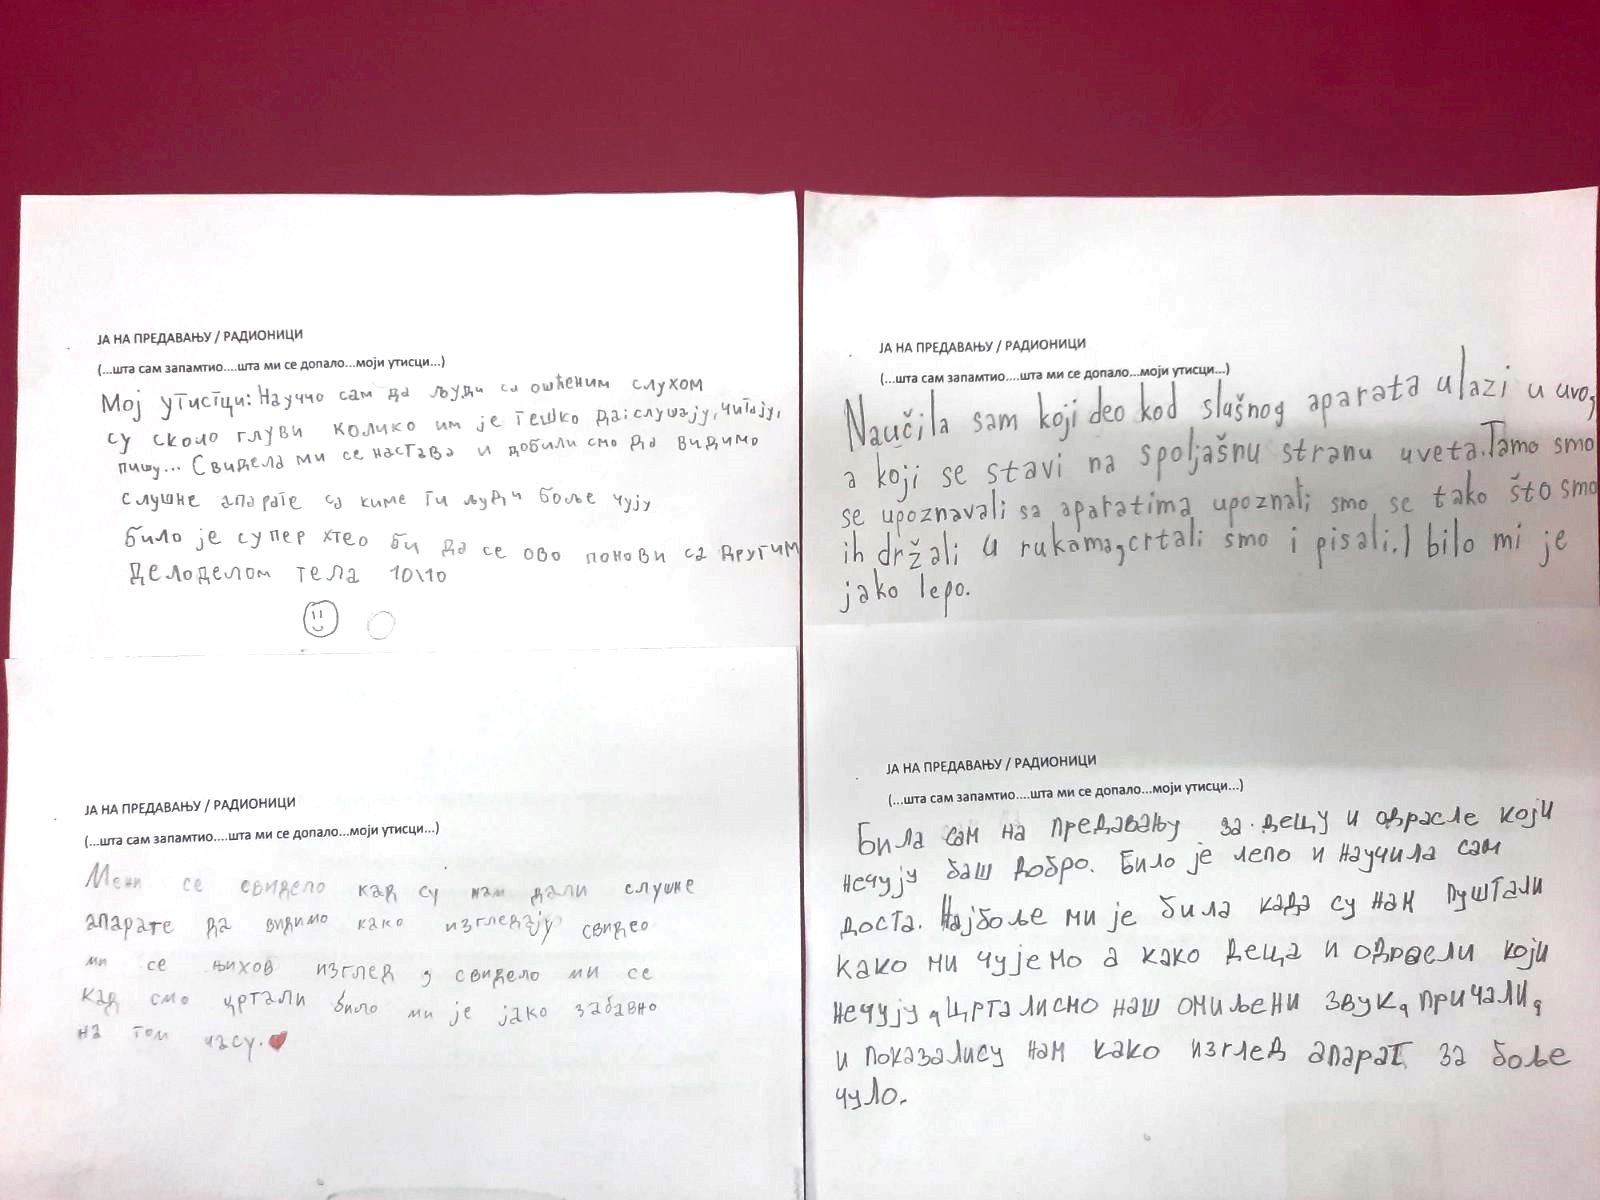 ЈА НА ПРЕДАВАЊУ / РАДИОНИЦИ
(...шта сам запамтио....шта ми се допало...моји утисци...)
Мој утистци: Научио сам да људи са ошћеним слухом
су сколо глуви колико им је тешко да: слушају, читају,
пишу... Свидела ми се настава и добили смо да видимо
слушне апарате са киме ти људи боље чују
било је супер хтео би да се ово понови са другим
делоделом тела 10\10
ЈА НА ПРЕДАВАЊУ / РАДИОНИЦИ
(...шта сам запамтио....шта ми се допало...моји утисци...)
Naučila sam koji deo kod slušnog aparata ulazi u uvo,
a koji se stavi na spoljašnu stranu uveta. Tamo smo
se upoznavali sa aparatima upoznali smo se tako što smo
ih držali u rukama, crtali smo i pisali. I bilo mi je
jako lepo.
ЈА НА ПРЕДАВАЊУ / РАДИОНИЦИ
(...шта сам запамтио....шта ми се допало...моји утисци...)
Мени се свидело кад су нам дали слушне
апарате да видимо како изгледају свидео
ми се њихов изглед, свидело ми се
кад смо цртали било ми је јако забавно
на том часу.
ЈА НА ПРЕДАВАЊУ / РАДИОНИЦИ
(...шта сам запамтио....шта ми се допало...моји утисци...)
Била сам на предавању за децу и одрасле који
нечују баш добро. Било је лепо и научила сам
доста. Најбоље ми је била када су нам пуштали
како ми чујемо а како деца и одрасли који
нечују, цртали смо наш омиљени звук, причали,
и показалису нам како изглед апарат за боље
чуло.